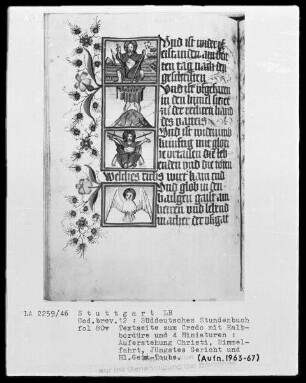 Vnd ist wider
erstanden am
ten tag nach den
geschriften
Vnd ist vfgefaren
in den himel sitzet
zu der rechten hand
des vatters
Vnd ist widerumb
künftig mit glori
ze vrtailen die leb
enden vnd die toten
Welches richs wirt kain end
Vnd glob in den
hailgen gaist
herren vnd lebend
macher der
La 2259/46 Stuttgart LB
Cod.brev.12 : Süddeutsches Stundenbuch
fol 80v Textseite zum Credo mit Halb-
bordüre und 4 Miniaturen :
Auferstehung Christi, Himmel-
fahrt, Jüngstes Gericht und
Hl.Geist-Taube. (Aufn.1963-67)